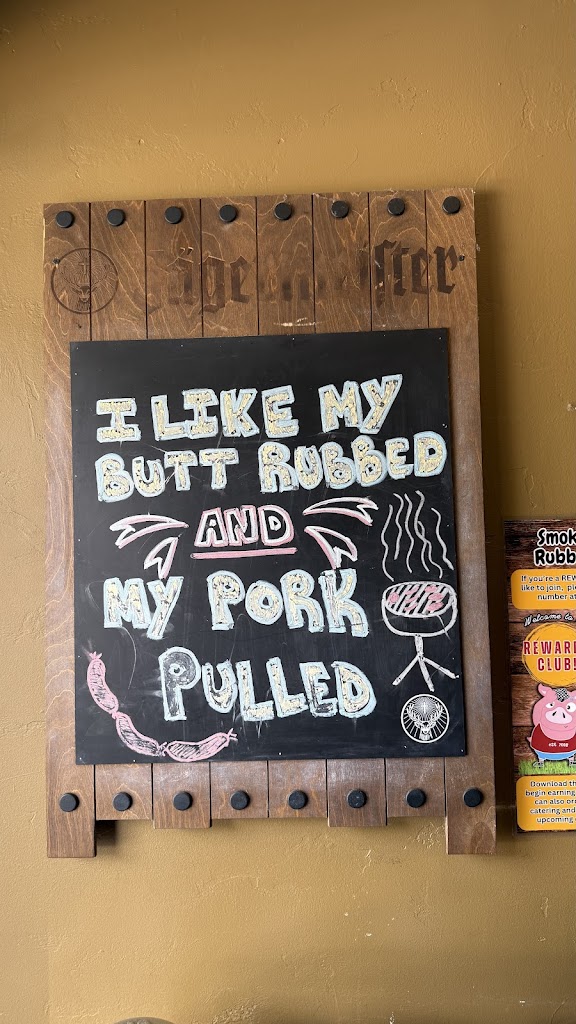 Jägermeister
I LIKE MY
BUTT RUBBED
AND
MY PORK
PULLED
Smok
Rubb
If you're a REW
like to join, ple
number at
Welcome to
REWARD
CLUB!
Download th
begin earning
can also or
catering and
upcoming